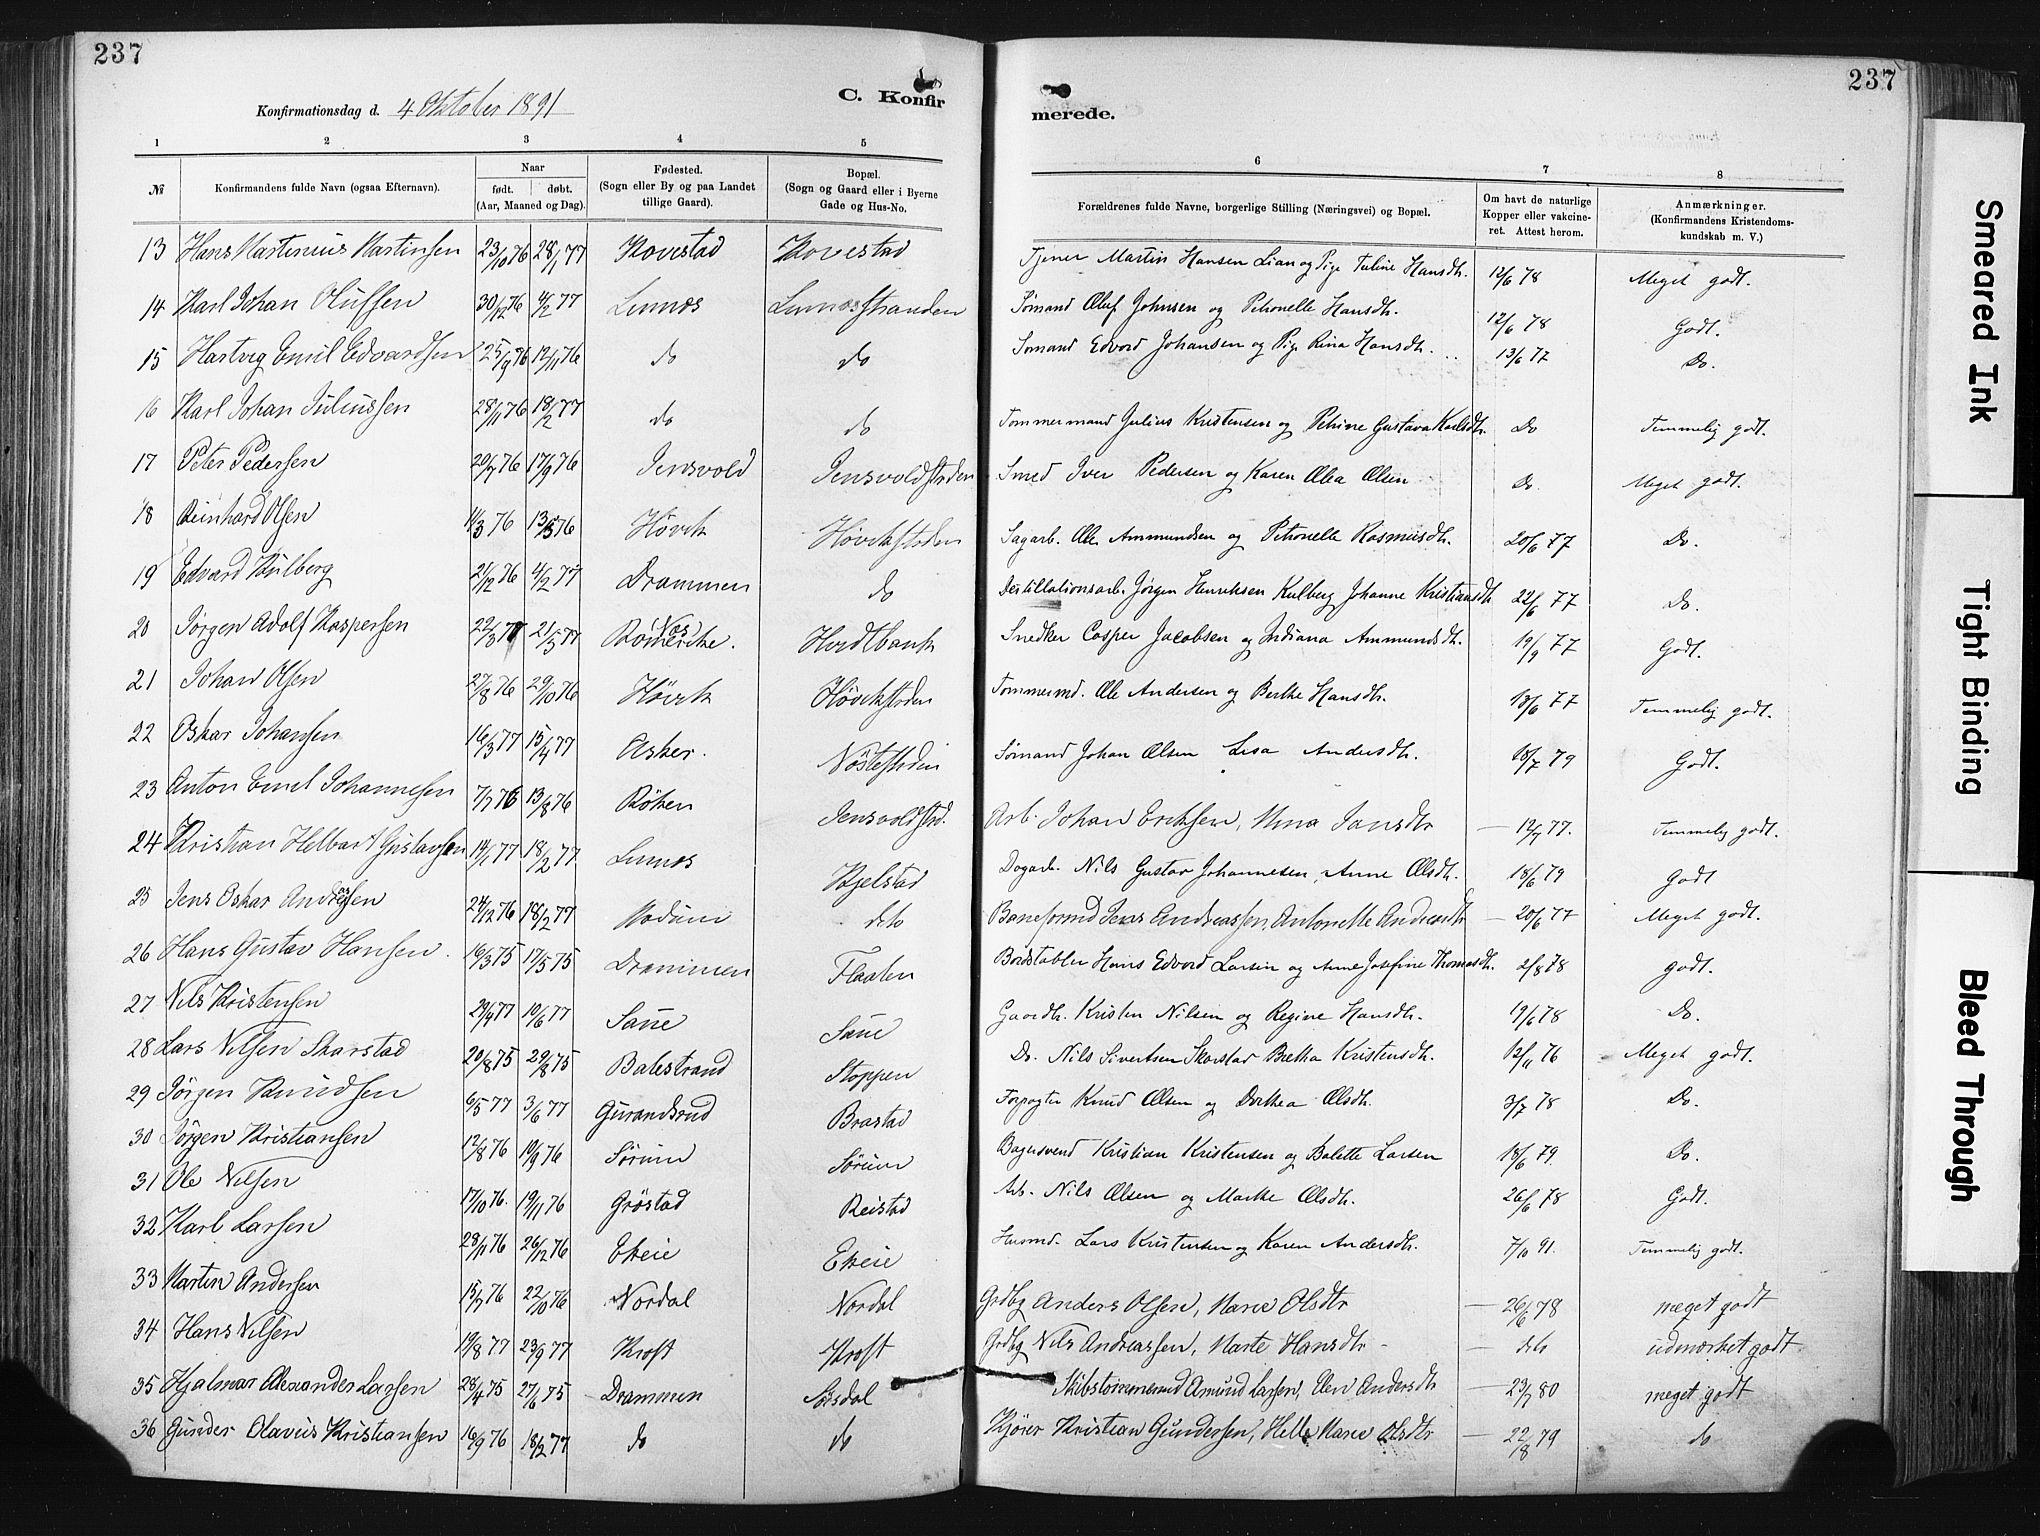 237
237
Konfirmationsdag d. 4 Oktober 1891
C. Konfir
merede.
1 2 3 4 5 6 7 8
№
Konfirmandens fulde Navn (ogsaa Efternavn).
Naar
født. døbt.
(Aar, Maaned og Dag).
Fødested.
(Sogn eller By og paa Landet
tillige Gaard).
Bopæl.
(Sogn og Gaard eller i Byerne
Gade og Hus-No.
Forældrenes fulde Navne, borgerlige Stilling (Næringsvei) og Bopæl.
Om havt de naturlige
Kopper eller vakcine-
ret. Attest herom.
Anmærkninger.
(Konfirmandens Kristendoms-
kundskab m. V.)
13 Hans Martinius Martinsen 23/10 76 28/1 77 Kovestad Kovestad Tjener Martin Hansen Lian og Pige Tuline Hansdtr. 12/6 78 Meget godt.
14 Karl Johan Oluffen 30/12 76 4/2 77 Linnes Linnesstranden Sømand Oluf Johnsen og Petronelle Hansdtr. 12/6 78 Godt.
15 Hartvig Emil Edvardsen 25/9 76 12/11 76 do do Sømand Edvard Johansen og Pige Rina Hansdtr. 13/6 77 Do.
16 Karl Johan Juliussen 28/11 76 18/2 77 do do Tømmermand Julius Kristensen og Petrine Gustava Karlsdtr. Do Temmelig godt.
17 Peter Pedersen 20/7 76 17/9 76 Jensvold Jensvoldstrden Smed Iver Pedersen og Karen Olea Olsen Do. Meget godt.
18 Reinhard Olsen 11/3 76 13/5 76 Høvik Høvikstrden Sagarb. Ole Ammundsen og Petronelle Rasmusdtr. 20/6 77 Do.
19 Edvard Kulberg 21/12 76 4/2 77 Drammen do Destillationsarb. Jørgen Henriksen Kulberg Johanne Kristiansdtr 22/6 77 Do.
20 Jørgen Adolf Kaspersen 22/3 77 21/5 77 Nes Romerike. Hvidtbank Snedker Casper Jacobsen og Indiana Ammundsdtr. 19/9 77 Godt.
21 Johan Olsen 27/8 76 29/10 76 Høvik Høvikstrden Tømmermd. Ole Andersen og Berthe Hansdtr. 18/6 77 Temmelig godt.
22 Oskar Johansen 16/3 77 15/4 77 Asker. Nøstestrden Sømand Johan Olsen Lisa Andersdtr. 18/7 79 Godt.
23 Anton Emil Johannesen 7/7 76 13/8 76 Røken Jensvoldstrd. Arb. Johan Eriksen, Mina Jansdtr — 12/7 77. Temmelig godt.
24 Kristian Helbart Gustavsen 14/1 77 18/2 77 Linnes Kjelstad Dagarb. Nils Gustav Johannesen, Anne Olsdtr. 18/6 79 Godt
25 Jens Oskar Andreasen 24/12 76 18/2 77 Modum dito Baneformd Jens Andreassen, Antonette Andreasdtr — 20/6 77 Meget godt.
26 Hans Gustav Hansen. 16/3 75 17/5 75 Drammen Flaaten Bordstabler Hans Edvard Larsen og Anne Josefine Thomasdtr. 2/8 78 godt.
27 Nils Kristensen 29/4 77 10/6 77 Saue Saue Gaardbr. Kristen Nilsen og Regine Hansdtr. 19/6 78 Do.
28 Lars Nilsen Skarstad 20/8 75 29/8 75 Balestrand Stoppen Do. Nils Sivertsen Skarstad Bretha Kristensdtr. 12/11 76 Meget godt.
29 Jørgen Knudsen 6/5 77 3/6 77 Gurandsrud Brastad Forpagter Knud Olsen og Dorthea Olsdtr. 3/7 78 Do.
30 Jørgen Kristiansen 12/8 76 10/9 76 Sørum Sørum Bagersvend Kristian Kristensen og Bolette Larsen 18/6 79. Do.
31 Ole Nilsen 17/10 76. 19/11 76 Grøstad Reistad Arb. Nils Olsen og Marthe Olsdtr. 26/6 78 Godt.
32 Karl Larsen 28/11 76 26/12 76 Ekeie Ekeie Husmd. Lars Kristensen og Karen Andersdtr. 7/10 91. Temmelig godt.
33 Martin Andersen 15/7 76 22/10 76 Nordal Nordal Grdbg Anders Olsen, Marie Olsdtr — 26/6 78 meget godt
34 Hans Nilsen 19/8 77 23/9 77 Kroft Kroft Grdbg Nils Andreassen, Marte Hansdtr - dito udmærket godt
35 Hjalmar Alexander Larsen 28/4 75 27/6 75 Drammen Sørsdal Skibstømmermd Amund Larsen, Elen Andersdtr — 23/7 80 meget godt
36 Gunder Olavus Kristiansen 16/9 76 18/2 77 do do Kjører Kristian Gundersen, Helle Marie Olsdtr — 22/8 79 do
Smeared Ink
Tight Binding
Bleed Through